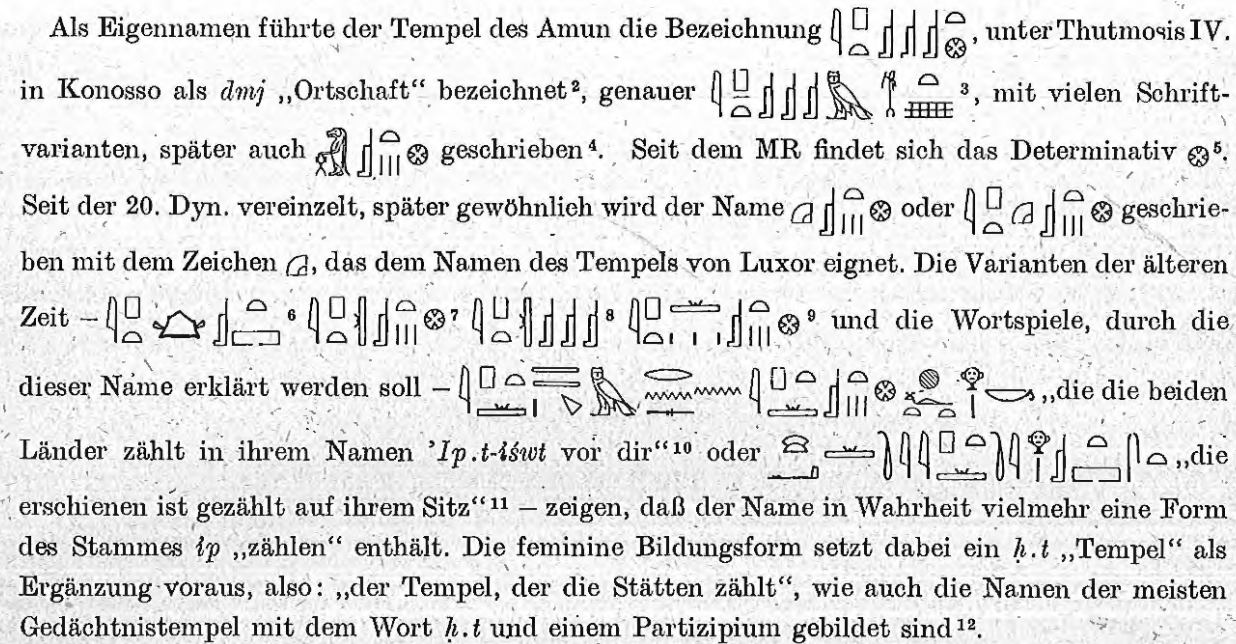 Als Eigennamen führte der Tempel des Amun die Bezeichnung 𓇋𓊪𓏏𓊨𓊨𓊨𓏏𓊖, unter Thutmosis IV.
in Konosso als dmj „Ortschaft“ bezeichnet², genauer 𓇋𓊪𓏏𓊨𓊨𓊨𓅓 ³, mit vielen Schrift-
varianten, später auch 𓊨𓏏𓏥𓊖 geschrieben⁴. Seit dem MR findet sich das Determinativ 𓊖⁵.
Seit der 20. Dyn. vereinzelt, später gewöhnlich wird der Name 𓊨𓏏𓏥𓊖 oder 𓇋𓊪𓏏 𓊨𓏏𓏥𓊖 geschrie-
ben mit dem Zeichen, das dem Namen des Tempels von Luxor eignet. Die Varianten der älteren
Zeit – 𓇋𓊪𓏏 𓊨𓏏𓉐 ⁶ 𓇋𓊪𓏏 𓊨𓏏𓏥𓊖⁷ 𓇋𓊪𓏏 𓊨𓊨𓊨⁸ 𓇋𓊪𓏏 𓊨𓏏𓏥𓊖⁹ und die Wortspiele, durch die
dieser Name erklärt werden soll – „die die beiden
Länder zählt in ihrem Namen ’Ip.t-iśwt vor dir“¹⁰ oder „die
erschienen ist gezählt auf ihrem Sitz“¹¹ – zeigen, daß der Name in Wahrheit vielmehr eine Form
des Stammes ip „zählen“ enthält. Die feminine Bildungsform setzt dabei ein ḥ.t „Tempel“ als
Ergänzung voraus, also: „der Tempel, der die Stätten zählt“, wie auch die Namen der meisten
Gedächtnistempel mit dem Wort ḥ.t und einem Partizipium gebildet sind¹².